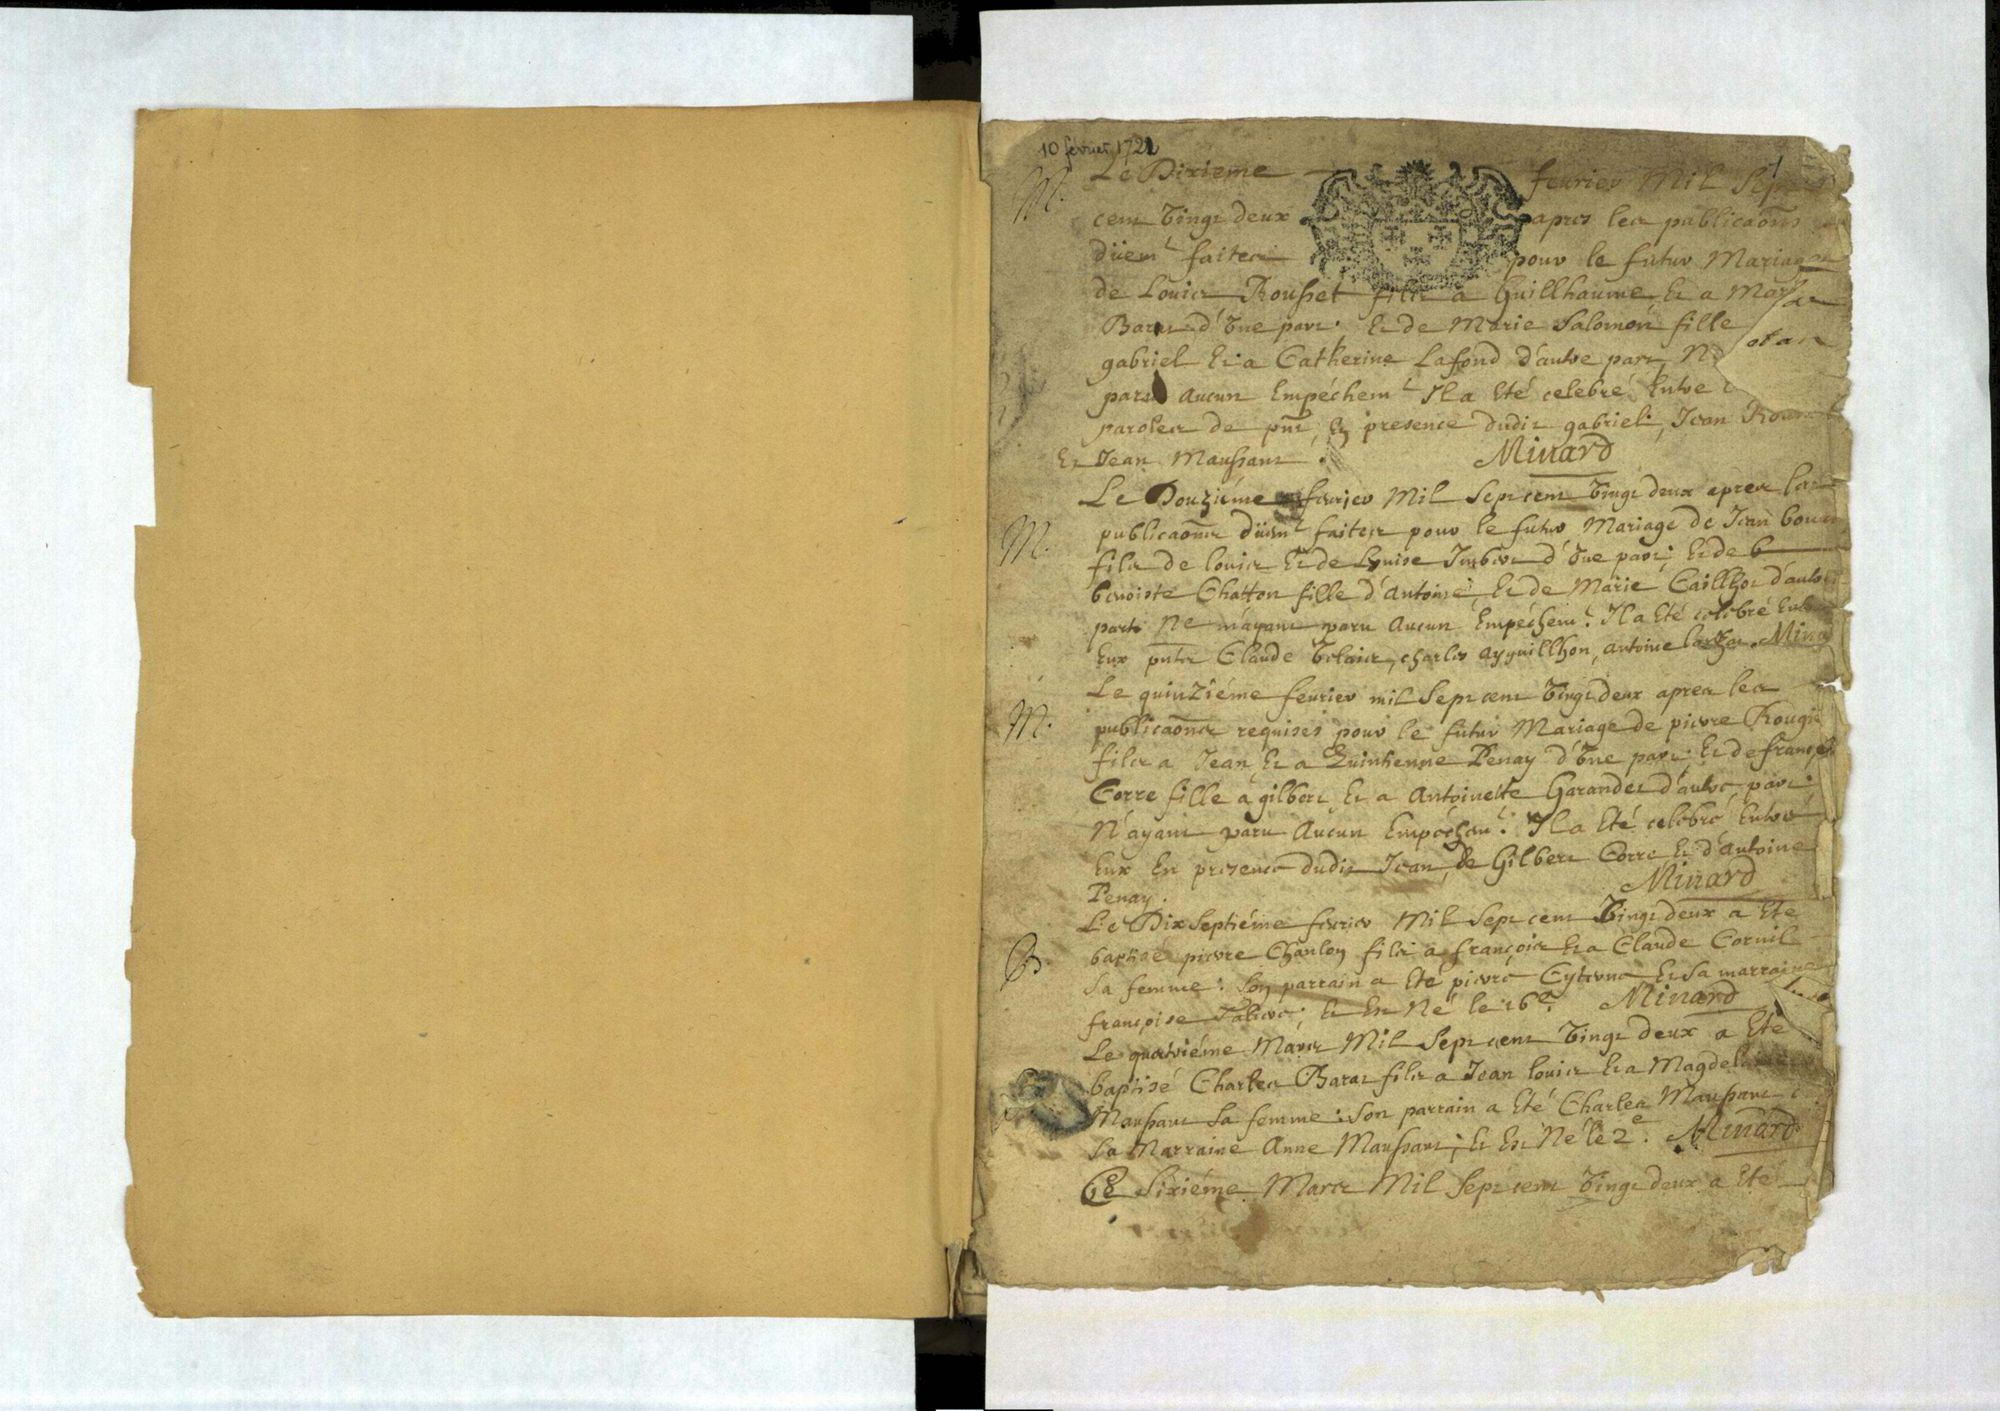 10 février 1722
1
M. Le Dixieme fevrier Mil Sept
cent vingt deux apres les publicaõns
düem.t faites pour le futur Mariage
de Louis Rousset fils a Guillhaume et a
Barat d'vne part. et de Marie Salomon fille
gabriel et a Catherine Lafond d'autre part, N
paru aucun Empéchem.t Il a Eté celebré Entre
paroles de pñt, En presence dudit gabriel, Jean
et Jean Maussant. Minard
M. Le Douziéme fevrier Mil Sept cent vingt deux apres les
publicaõns düem.t faites pour le futur Mariage de Jean
fils de louis et de Louise Imbert d'vne part; et de b
benoiste Chatton fille d'Antoine et de Marie Caillhot d'autre
part Ne m'áyant paru Aucun Empéchem.t Il a Eté celebré Entre
Eux pntes Claude charles ayguillhon, antoine Minard
M. Le quinziéme fevrier mil Sept cent vingt deux apres les
publicaõns requises pour le futur Mariage de pierre Rougie
fils a Jean et a Quintienne Penay d'vne part; et de françoise
Corre fille à gilbert et a Antoinette Garandet d'autre part:
N'ayant paru Aucun Empéchem.t Il a Eté celebré Entre
Eux En presence dudit Jean, de Gilbert Corre et d'Antoine
Penay. Minard
B. Le Dix Septiéme fevrier Mil Sept cent vingt deux a Eté
baptisé pierre Chanlon fils a françois et a Claude Cornil
Sa femme: Son parrain a Eté pierre et Sa marraine
françoise et Est Né le 16.e Minard
Le quatriéme Mars Mil Sept cent vingt deux a Eté
baptisé Charles Barat fils a Jean louis et a
Maussant Sa femme: Son parrain a Eté Charles Maussant
Sa Marraine Anne Maussant; et Est Né le 2.e Minard
Le Sixiéme Mars Mil Sept cent vingt deux a Eté